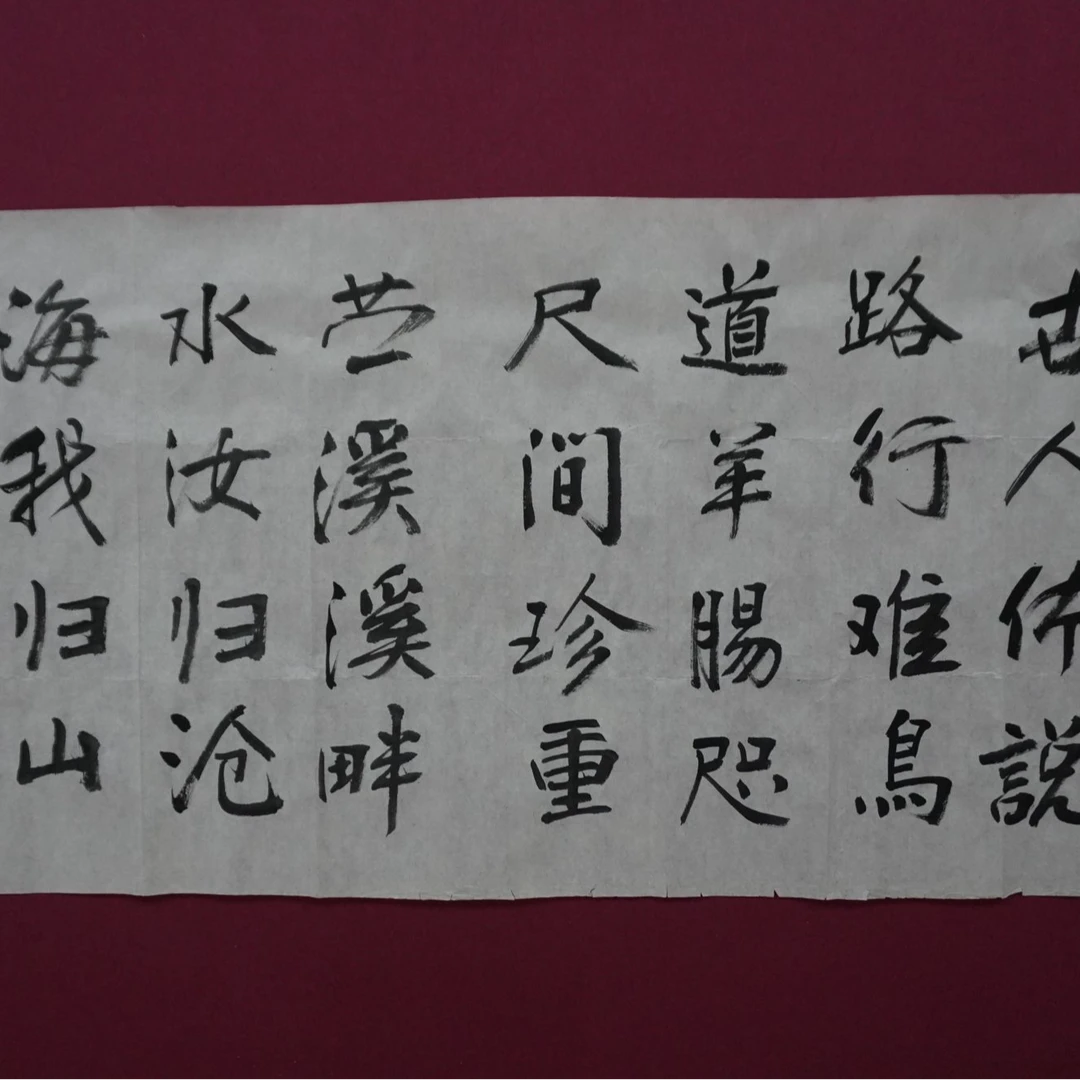 世人休説
路行难鳥
道羊腸咫
尺间珍重
苎溪溪畔
水汝归沧
海我归山